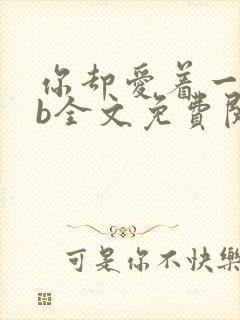 你却爱着一
b全文免费
可是你不快樂